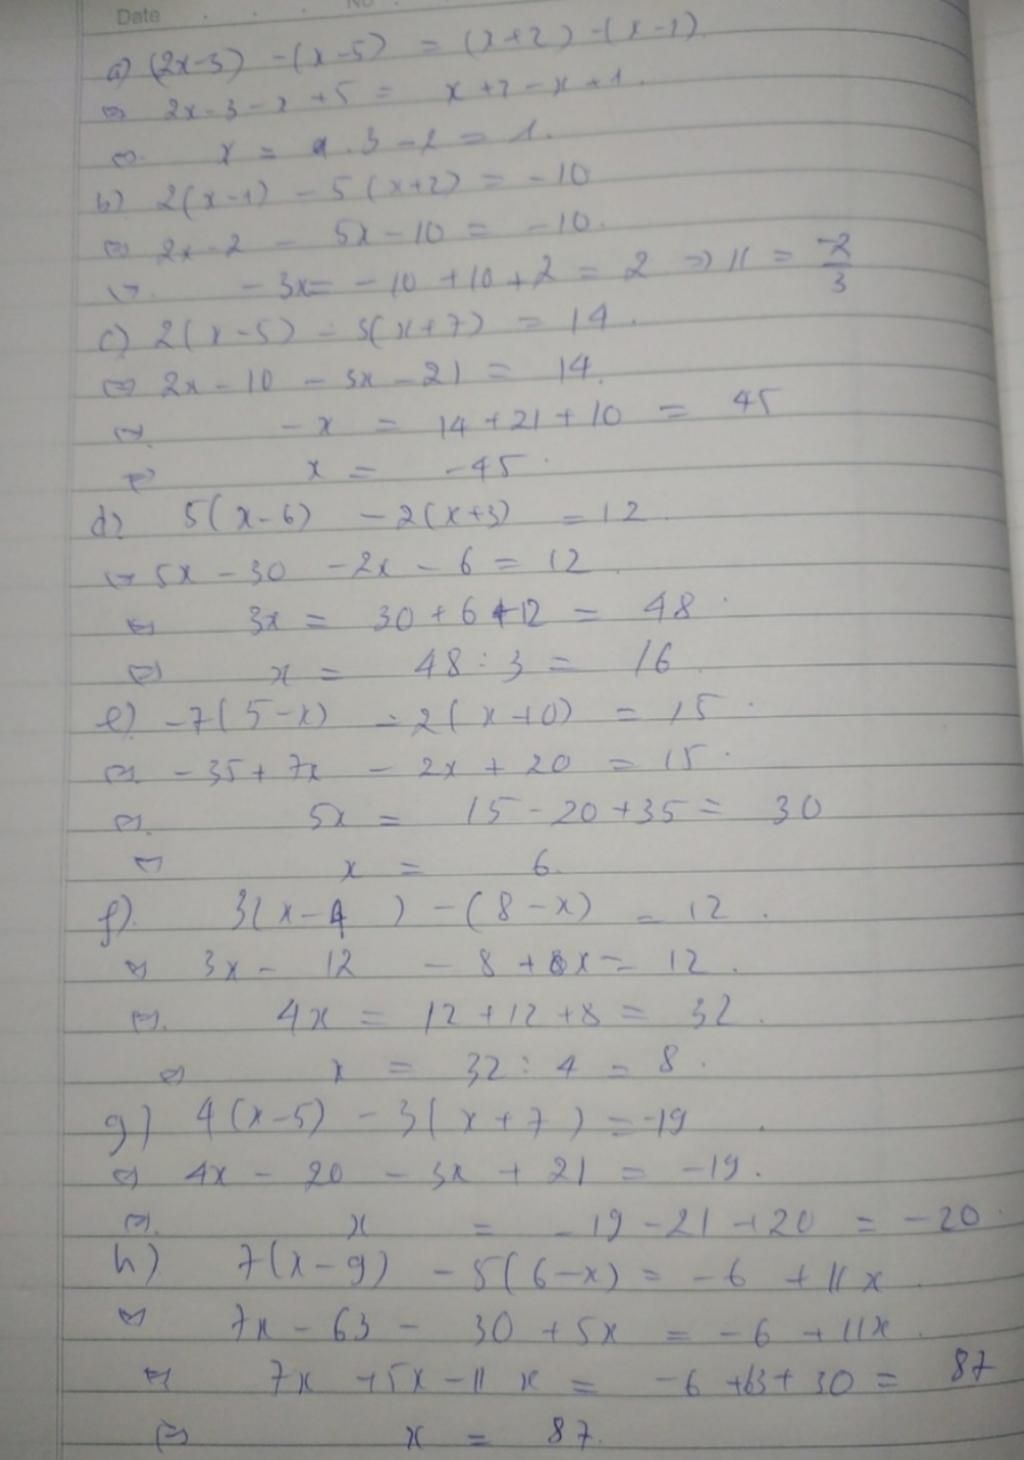 Date No
a) (2x-3) -(x-5) = (x+2) -(x-1)
⇔ 2x-3-x+5 = x+2-x+1.
⇔ x = 3-2 = 1.
b) 2(x-1) - 5(x+2) = -10
⇔ 2x-2 - 5x-10 = -10.
⇔ -3x = -10+10+2 = 2 ⇒ x = -2/3
c) 2(x-5) - 3(x+7) = 14.
⇔ 2x-10 - 3x-21 = 14.
⇔ -x = 14+21+10 = 45
⇔ x = -45.
d) 5(x-6) -2(x+3) = 12
⇔ 5x-30 -2x-6 = 12.
⇔ 3x = 30+6+12 = 48.
⇔ x = 48:3 = 16
e) -7(5-x) -2(x+10) = 15.
⇔ -35+7x - 2x+20 = 15.
⇔ 5x = 15-20+35 = 30
⇔ x = 6.
f) 3(x-4) -(8-x) = 12.
⇔ 3x - 12 - 8+x = 12.
⇔ 4x = 12+12+8 = 32.
⇔ x = 32:4 = 8.
g) 4(x-5) - 3(x+7) = -19.
⇔ 4x - 20 - 3x + 21 = -19.
⇔ x = -19-21+20 = -20.
h) 7(x-9) - 5(6-x) = -6 +11x
⇔ 7x-63 - 30+5x = -6 +11x.
⇔ 7x +5x-11x = -6+63+30 = 87
⇔ x = 87.